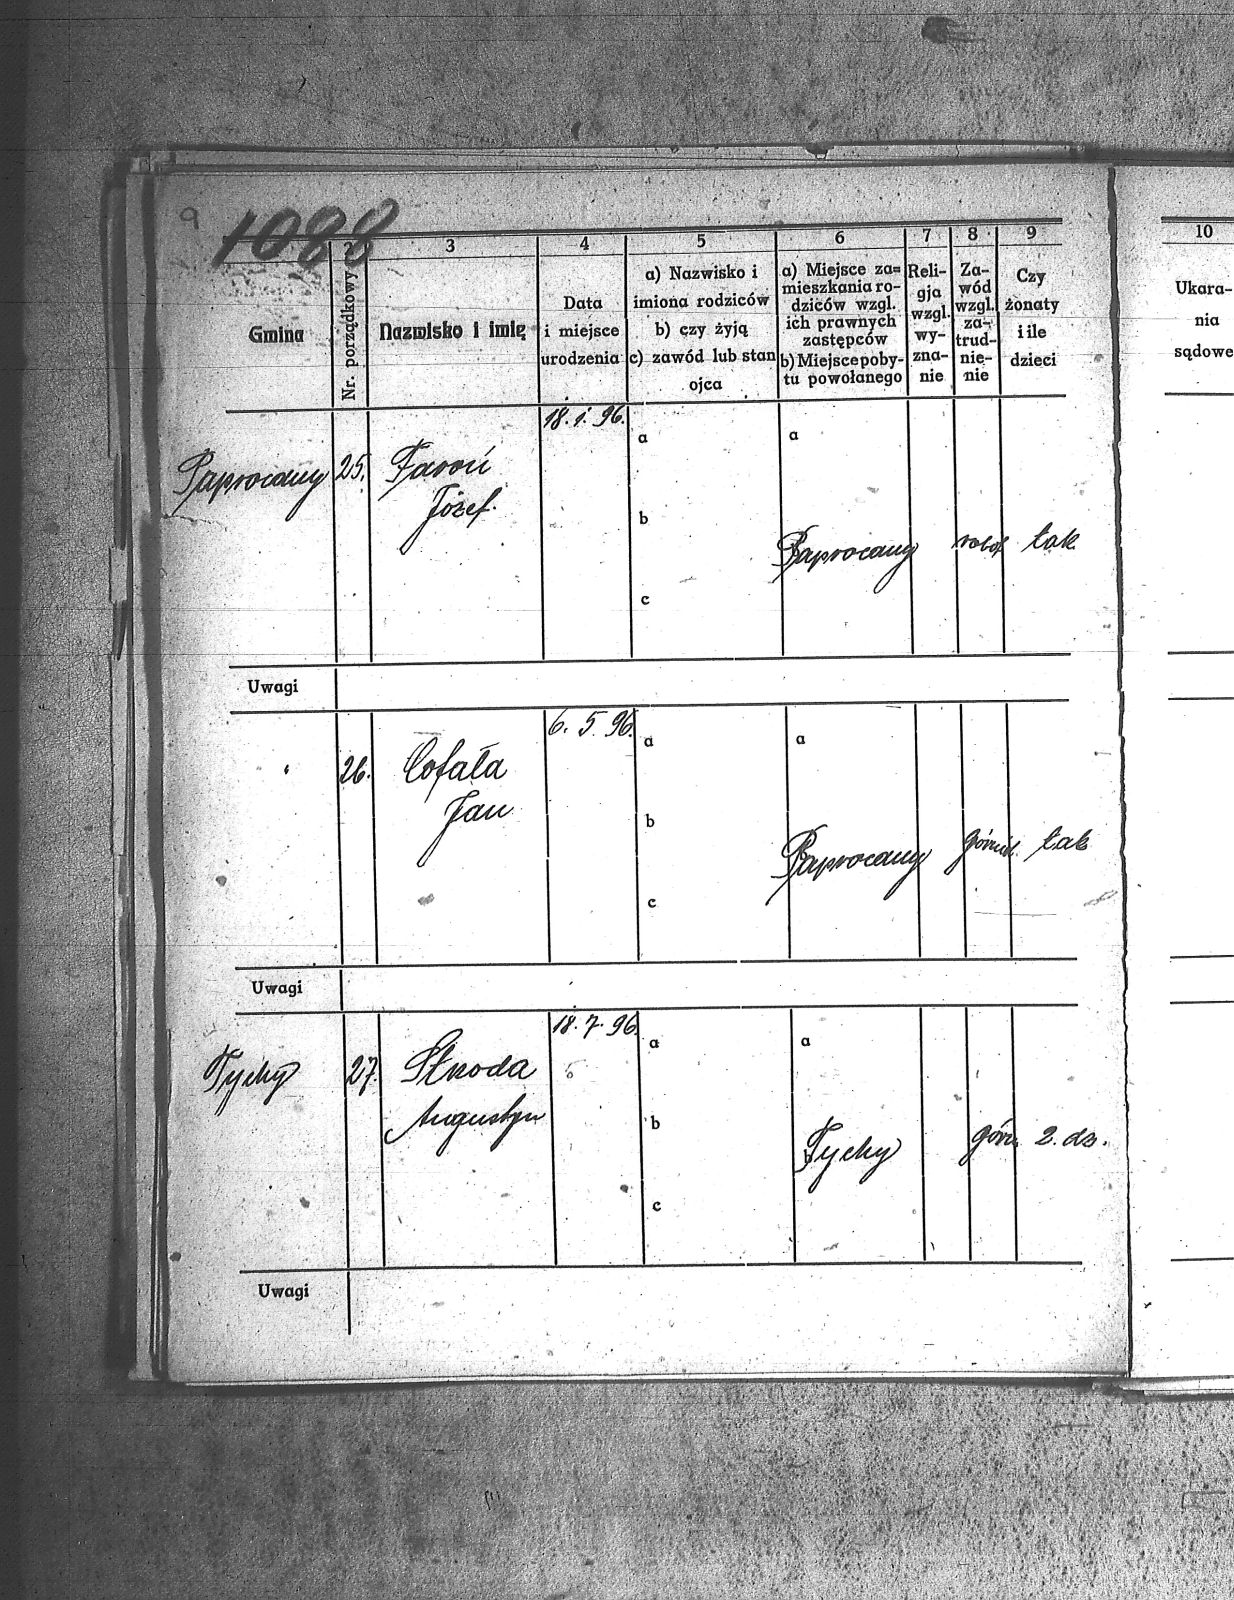 9
1088
2 3 4 5 6 7 8 9 10
Gmina
Nr. porządkowy
Nazwisko i imię
Data
i miejsce
urodzenia
a) Nazwisko i
imiona rodziców
b) czy żyją
c) zawód lub stan
ojca
a) Miejsce za=
mieszkania ro-
dziców wzgl.
ich prawnych
zastępców
b) Miejsce poby-
tu powołanego
Reli-
gja
wzgl.
wy-
zna-
nie
Za-
wód
wzgl.
za-
trud-
nie-
nie
Czy
żonaty
i ile
dzieci
Ukara-
nia
sądowe
18. 1. 96.
Paprocany 25. Faroń
Józef.
a a
b
Paprocany robot tak
c
Uwagi
6. 5. 96.
" 26. Cofała
Jan
a a
b
Paprocany górnik tak
c
Uwagi
18. 7. 96.
Tychy 27. Skroda
Augustyn
a a
b
b
Tychy górn 2. dz.
c
Uwagi